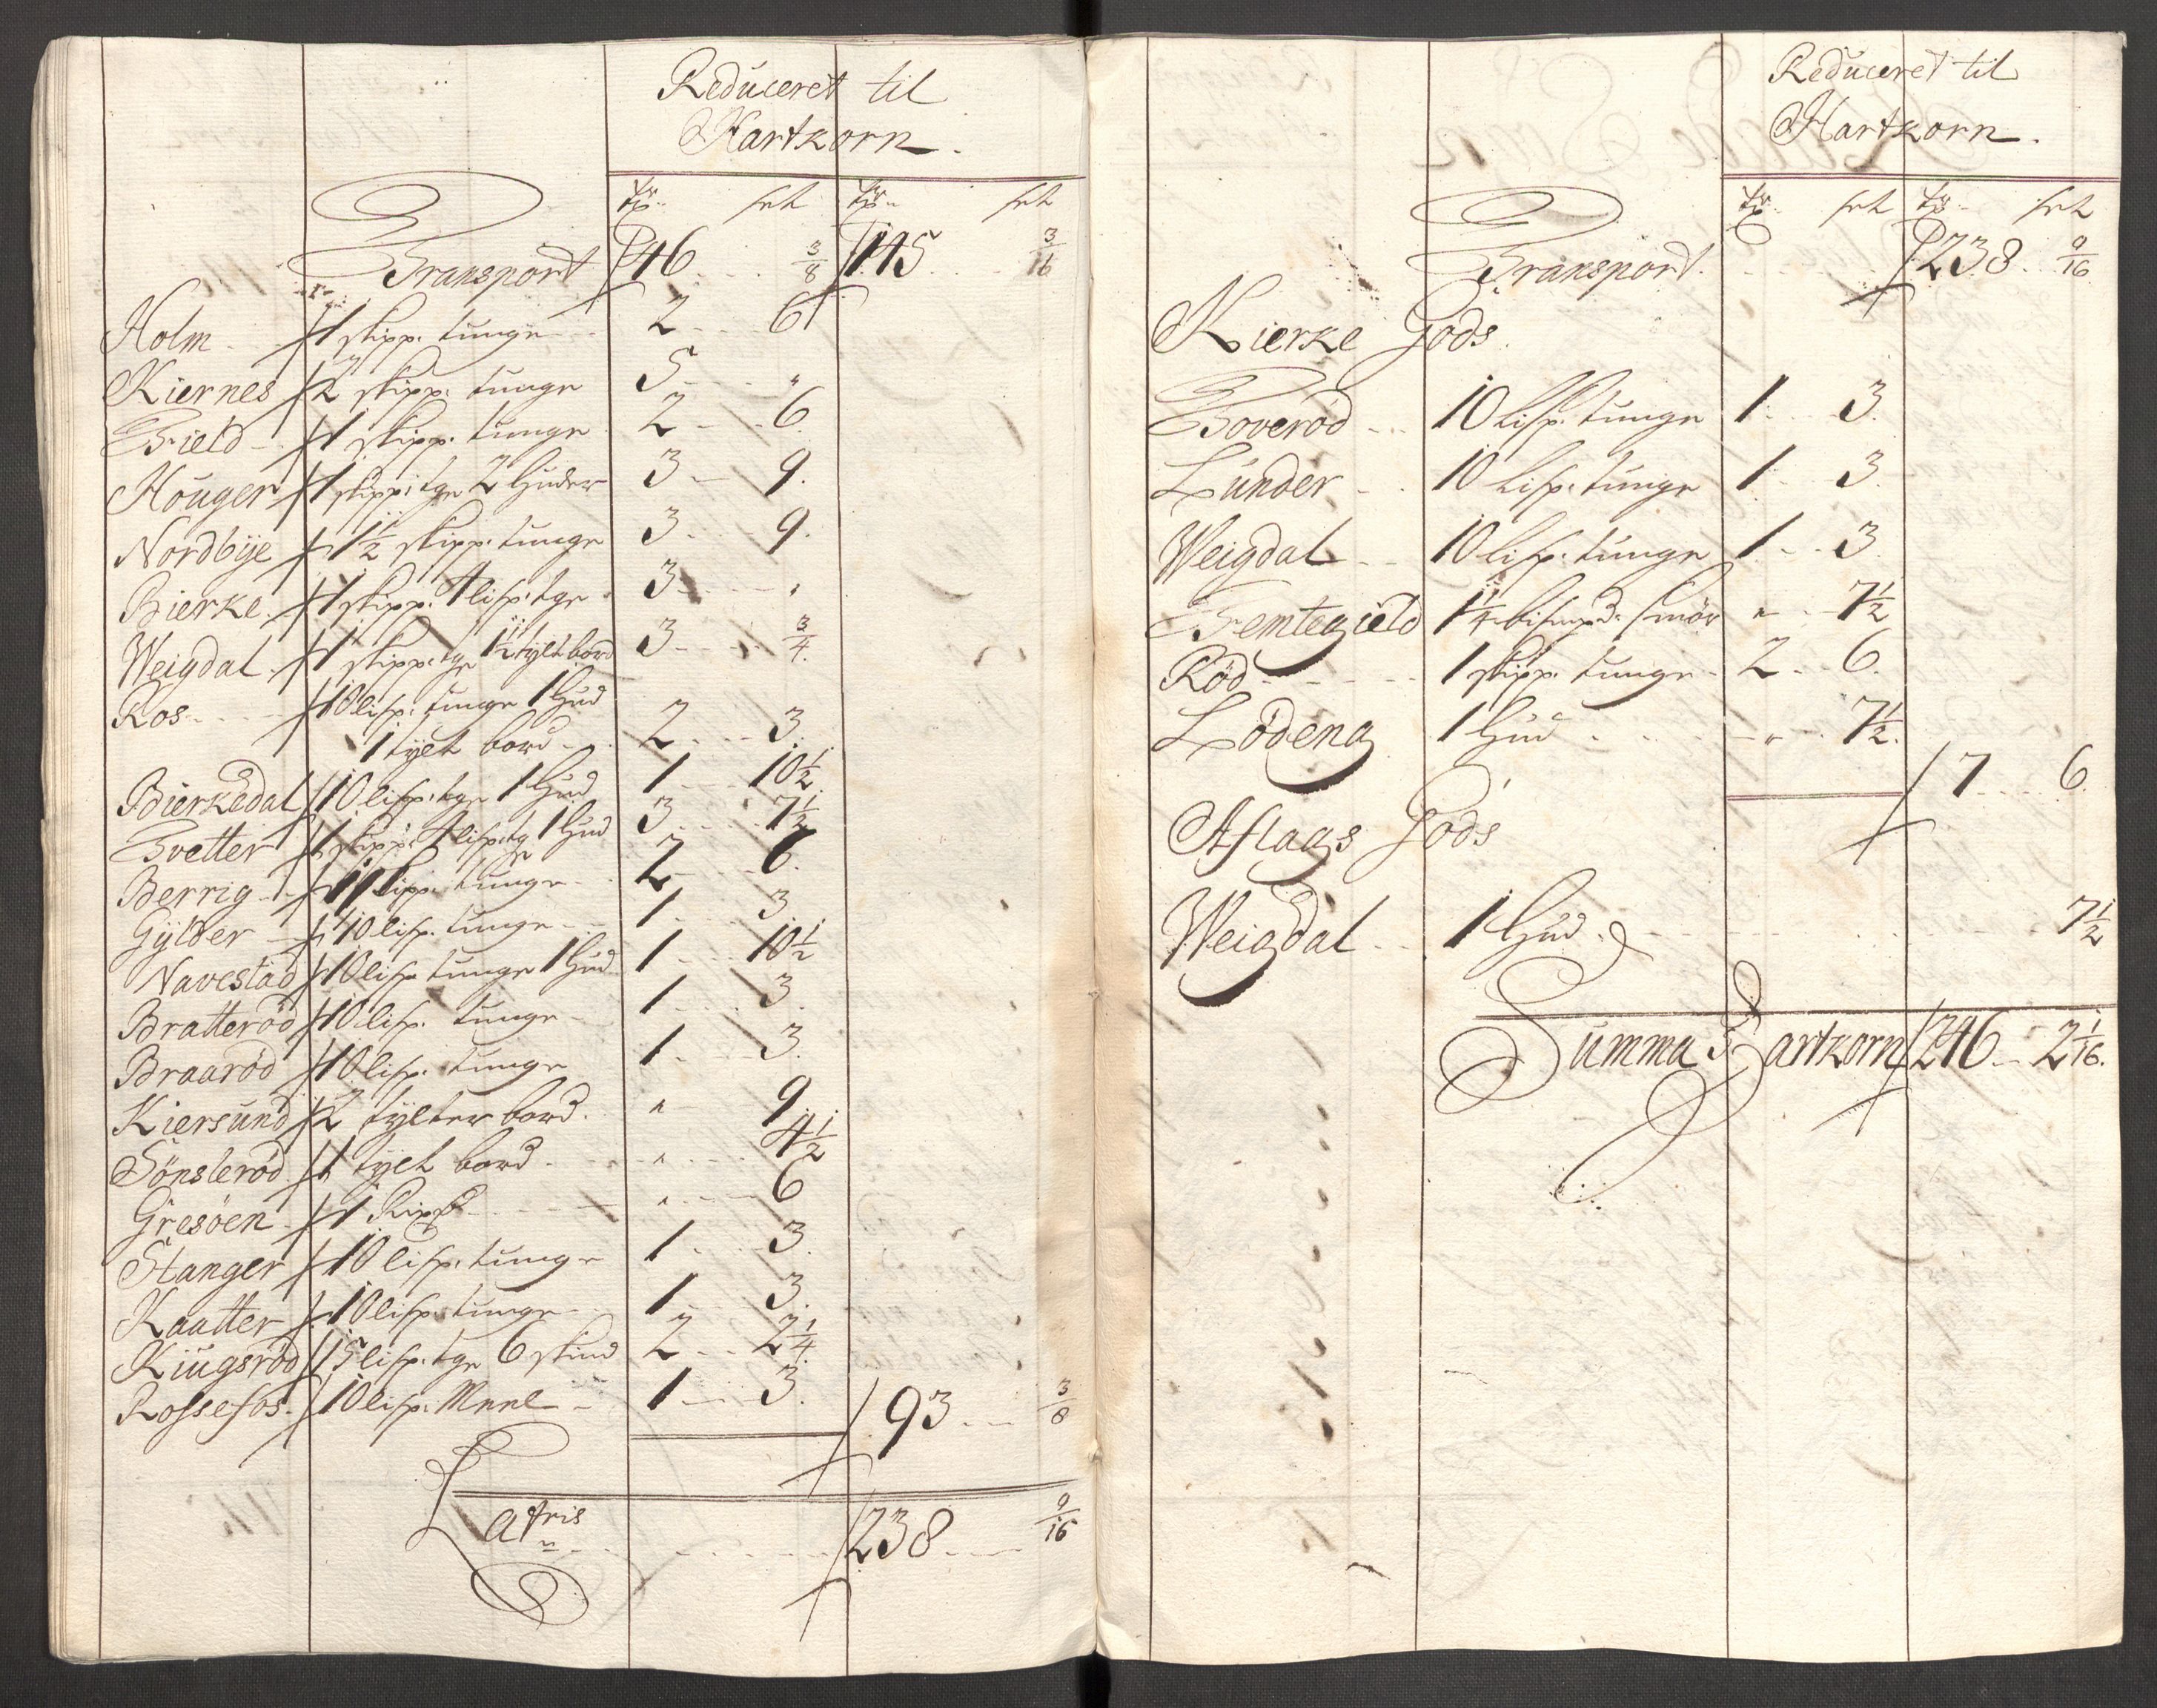 Reduceret til
Hartkorn.
tr. sch tr. sch
Transport 46 3/8 145 3/16
Holm 1 skipp. tunge 2 6
Kiernes 2 skipp. tunge 5 "
Field 1 skipp. tunge 2 6.
Houger 1 skipp: tge 2 huder 3 9.
Nordbÿe 1 1/2 skipp. tunge 3 9.
Bierke 1 skipp. 4 lisp. tge 3 "
Weigdal 1 skipp. tge 1 1/2 tylt bord 3 3/4.
Ros 10 lisp. tunge 1 hud
1 tylt bord 2 3.
Bierkedal 10 lisp. tge 1 hud 1 10 1/2
Tvetter 1 skipp: 4 lisp. tg 1 hud 3 7 1/2
Berrig 1 skipp. tunge 2 6.
Gylder 10 lisp. tunge 1 3
Navestad 10 lisp tunge 1 hud 1 10 1/2
Bratterød 10 lisp. tunge 1 3.
Braarød 10 lisp. tunge 1 3.
Kiersund 2 tylter bord. " 9
Sönslerød 1 tylt bord " 4 1/2
Gresøen 1 " 6
Stanger 10 lisp. tunge 1 3.
Kaatter 10 lisp. tunge 1 3.
Kiugsrød 15 lisp. tge 6 skind 2 2 1/4.
Rossefos. 10 lisp. Meel 1 3. 93 3/8
Latris 238 9/16
Reduceret til
Hartkorn.
tr. sch tr. sch
Transport. 238 9/16
Kierke Gods.
Toverød 10 Lisp. tunge 1 3.
Lunder 10 Lisp. tunge 1 3.
Weigdal 10 lisp. tunge 1 3.
Femtegield 1 1/4 bismpd. smör " 7 1/2
Rød 1 skipp. tunge 2 6.
Lödeng 1 hud " 7 1/2.
7 6.
Aflags Gods
Weigdal 1 hud. 7 1/2
Summa Hartkorn 246 2 1/16.